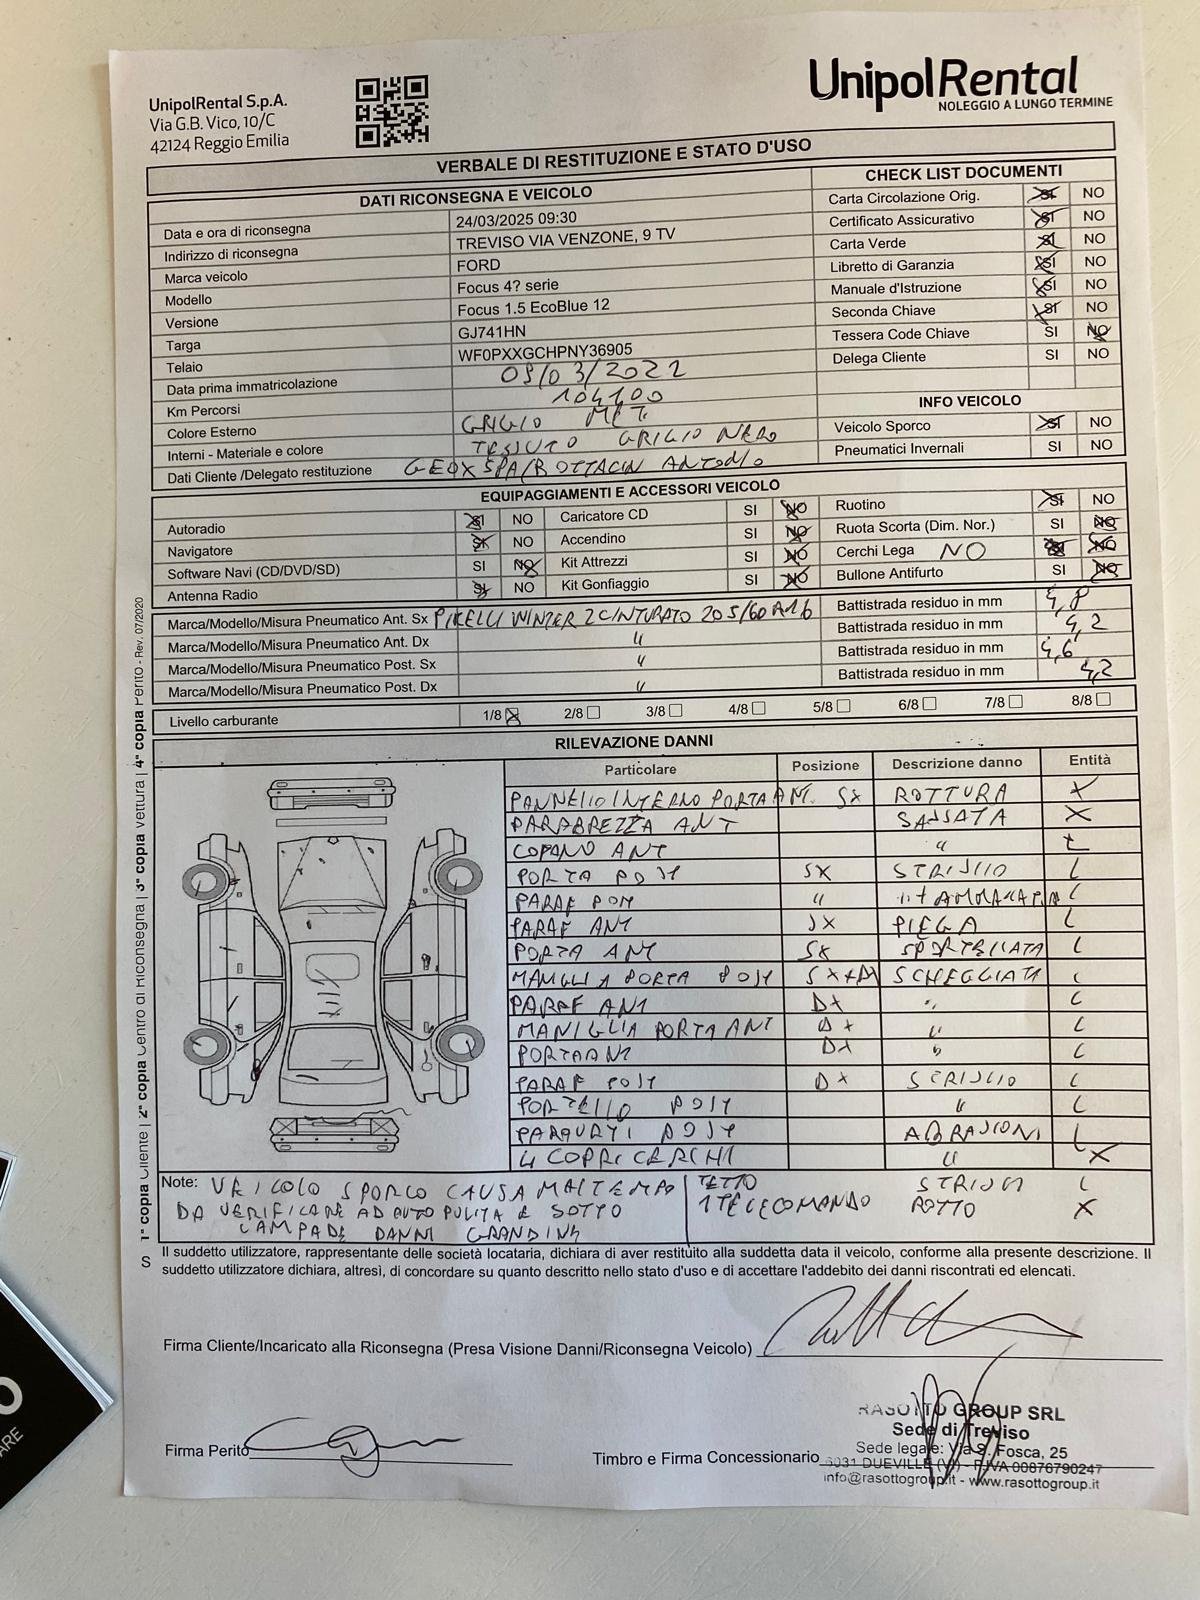 UnipolRental S.p.A.
Via G.B. Vico, 10/C
42124 Reggio Emilia
UnipolRental
NOLEGGIO A LUNGO TERMINE
VERBALE DI RESTITUZIONE E STATO D'USO
DATI RICONSEGNA E VEICOLO
Data e ora di riconsegna 24/03/2025 09:30
Indirizzo di riconsegna TREVISO VIA VENZONE, 9 TV
Marca veicolo FORD
Modello Focus 4? serie
Versione Focus 1.5 EcoBlue 12
Targa GJ741HN
Telaio WF0PXXGCHPNY36905
Data prima immatricolazione 03/2022
Km Percorsi 104100
Colore Esterno GRIGIO MET.
Interni - Materiale e colore TESSUTO GRIGIO NERO
Dati Cliente/Delegato restituzione GEOX SPA/BOTTACIN ANTONIO
CHECK LIST DOCUMENTI
Carta Circolazione Orig. SI NO
Certificato Assicurativo SI NO
Carta Verde SI NO
Libretto di Garanzia SI NO
Manuale d'Istruzione SI NO
Seconda Chiave SI NO
Tessera Code Chiave SI NO
Delega Cliente SI NO
INFO VEICOLO
Veicolo Sporco SI NO
Pneumatici Invernali SI NO
EQUIPAGGIAMENTI E ACCESSORI VEICOLO
Autoradio SI NO Caricatore CD SI NO Ruotino SI NO
Navigatore SI NO Accendino SI NO Ruota Scorta (Dim. Nor.) SI NO
Software Navi (CD/DVD/SD) SI NO Kit Attrezzi SI NO Cerchi Lega NO SI NO
Antenna Radio SI NO Kit Gonfiaggio SI NO Bullone Antifurto SI NO
Marca/Modello/Misura Pneumatico Ant. Sx PIRELLI WINTER 2 CINTURATO 205/60 R16 Battistrada residuo in mm 4,8
Marca/Modello/Misura Pneumatico Ant. Dx " Battistrada residuo in mm 4,2
Marca/Modello/Misura Pneumatico Post. Sx " Battistrada residuo in mm 4,6
Marca/Modello/Misura Pneumatico Post. Dx " Battistrada residuo in mm 4,2
Livello carburante 1/8 2/8 3/8 4/8 5/8 6/8 7/8 8/8
RILEVAZIONE DANNI
Particolare Posizione Descrizione danno Entità
PANNELLO INTERNO PORTA ANT. SX ROTTURA X
PARABREZZA ANT SASSATA X
COFANO ANT " L
PORTA POST SX STRISCIO L
PARAF POST " L
PARAF ANT SX PIEGA L
PORTA ANT SX SPORTELLATA L
MANIGLIA PORTA POST SX+DX SCHEGGIATA L
PARAF ANT DX " L
MANIGLIA PORTA ANT DX " L
PORTA ANT DX " L
PARAF POST DX STRISCIO L
PORTELLO POST " L
PARAURTI POST ABRASIONI L
4 COPRICERCHI " X
TETTO STRISCI L
1 TELECOMANDO ROTTO X
Note: VEICOLO SPORCO CAUSA MALTEMPO
DA VERIFICARE AD AUTO PULITA E SOTTO
LAMPADE DANNI GRANDINE
Il suddetto utilizzatore, rappresentante delle società locataria, dichiara di aver restituito alla suddetta data il veicolo, conforme alla presente descrizione. Il
suddetto utilizzatore dichiara, altresì, di concordare su quanto descritto nello stato d'uso e di accettare l'addebito dei danni riscontrati ed elencati.
Firma Cliente/Incaricato alla Riconsegna (Presa Visione Danni/Riconsegna Veicolo)
Firma Perito
Timbro e Firma Concessionario
RASOTTO GROUP SRL
Sede di Treviso
Sede legale: Via S. Fosca, 25
6031 DUEVILLE (VI) - P.IVA 00876790247
info@rasottogroup.it - www.rasottogroup.it
1ª copia Cliente | 2ª copia Centro di Riconsegna | 3ª copia Vettura | 4ª copia Perito - Rev. 07/2020
S
O
ARE